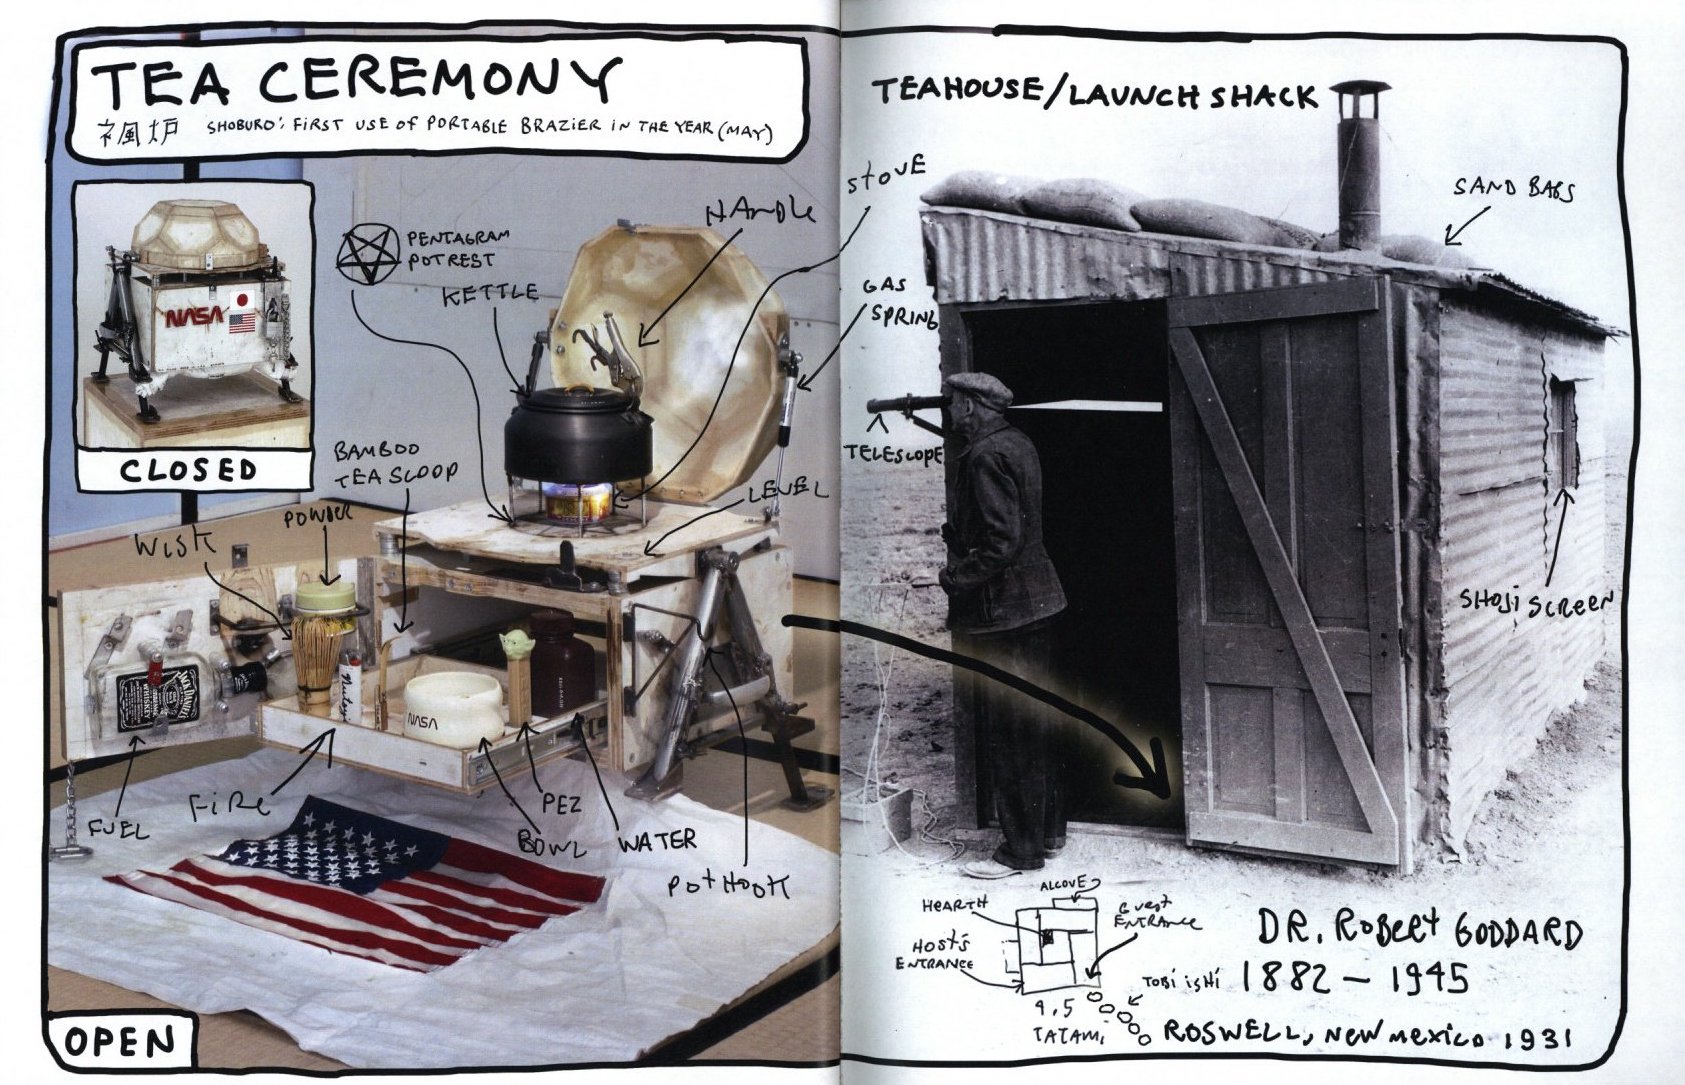 TEA CEREMONY
風炉 SHOBURO: FIRST USE OF PORTABLE BRAZIER IN THE YEAR (MAY)
NASA
CLOSED
PENTAGRAM
POTREST
KETTLE
HANDLE
STOVE
GAS
SPRING
BAMBOO
TEA SCOOP
LEVEL
POWDER
WISK
JACK DANIEL'S
WHISKEY
NASA
FUEL
FIRE
PEZ
BOWL
WATER
POT HOOK
OPEN
TEAHOUSE/LAUNCH SHACK
SAND BAGS
TELESCOPE
SHOJI SCREEN
ALCOVE
HEARTH
GUEST
ENTRANCE
HOST'S
ENTRANCE
TOBI ISHI
4.5
TATAMI
DR. ROBERT GODDARD
1882 – 1945
ROSWELL, NEW MEXICO 1931